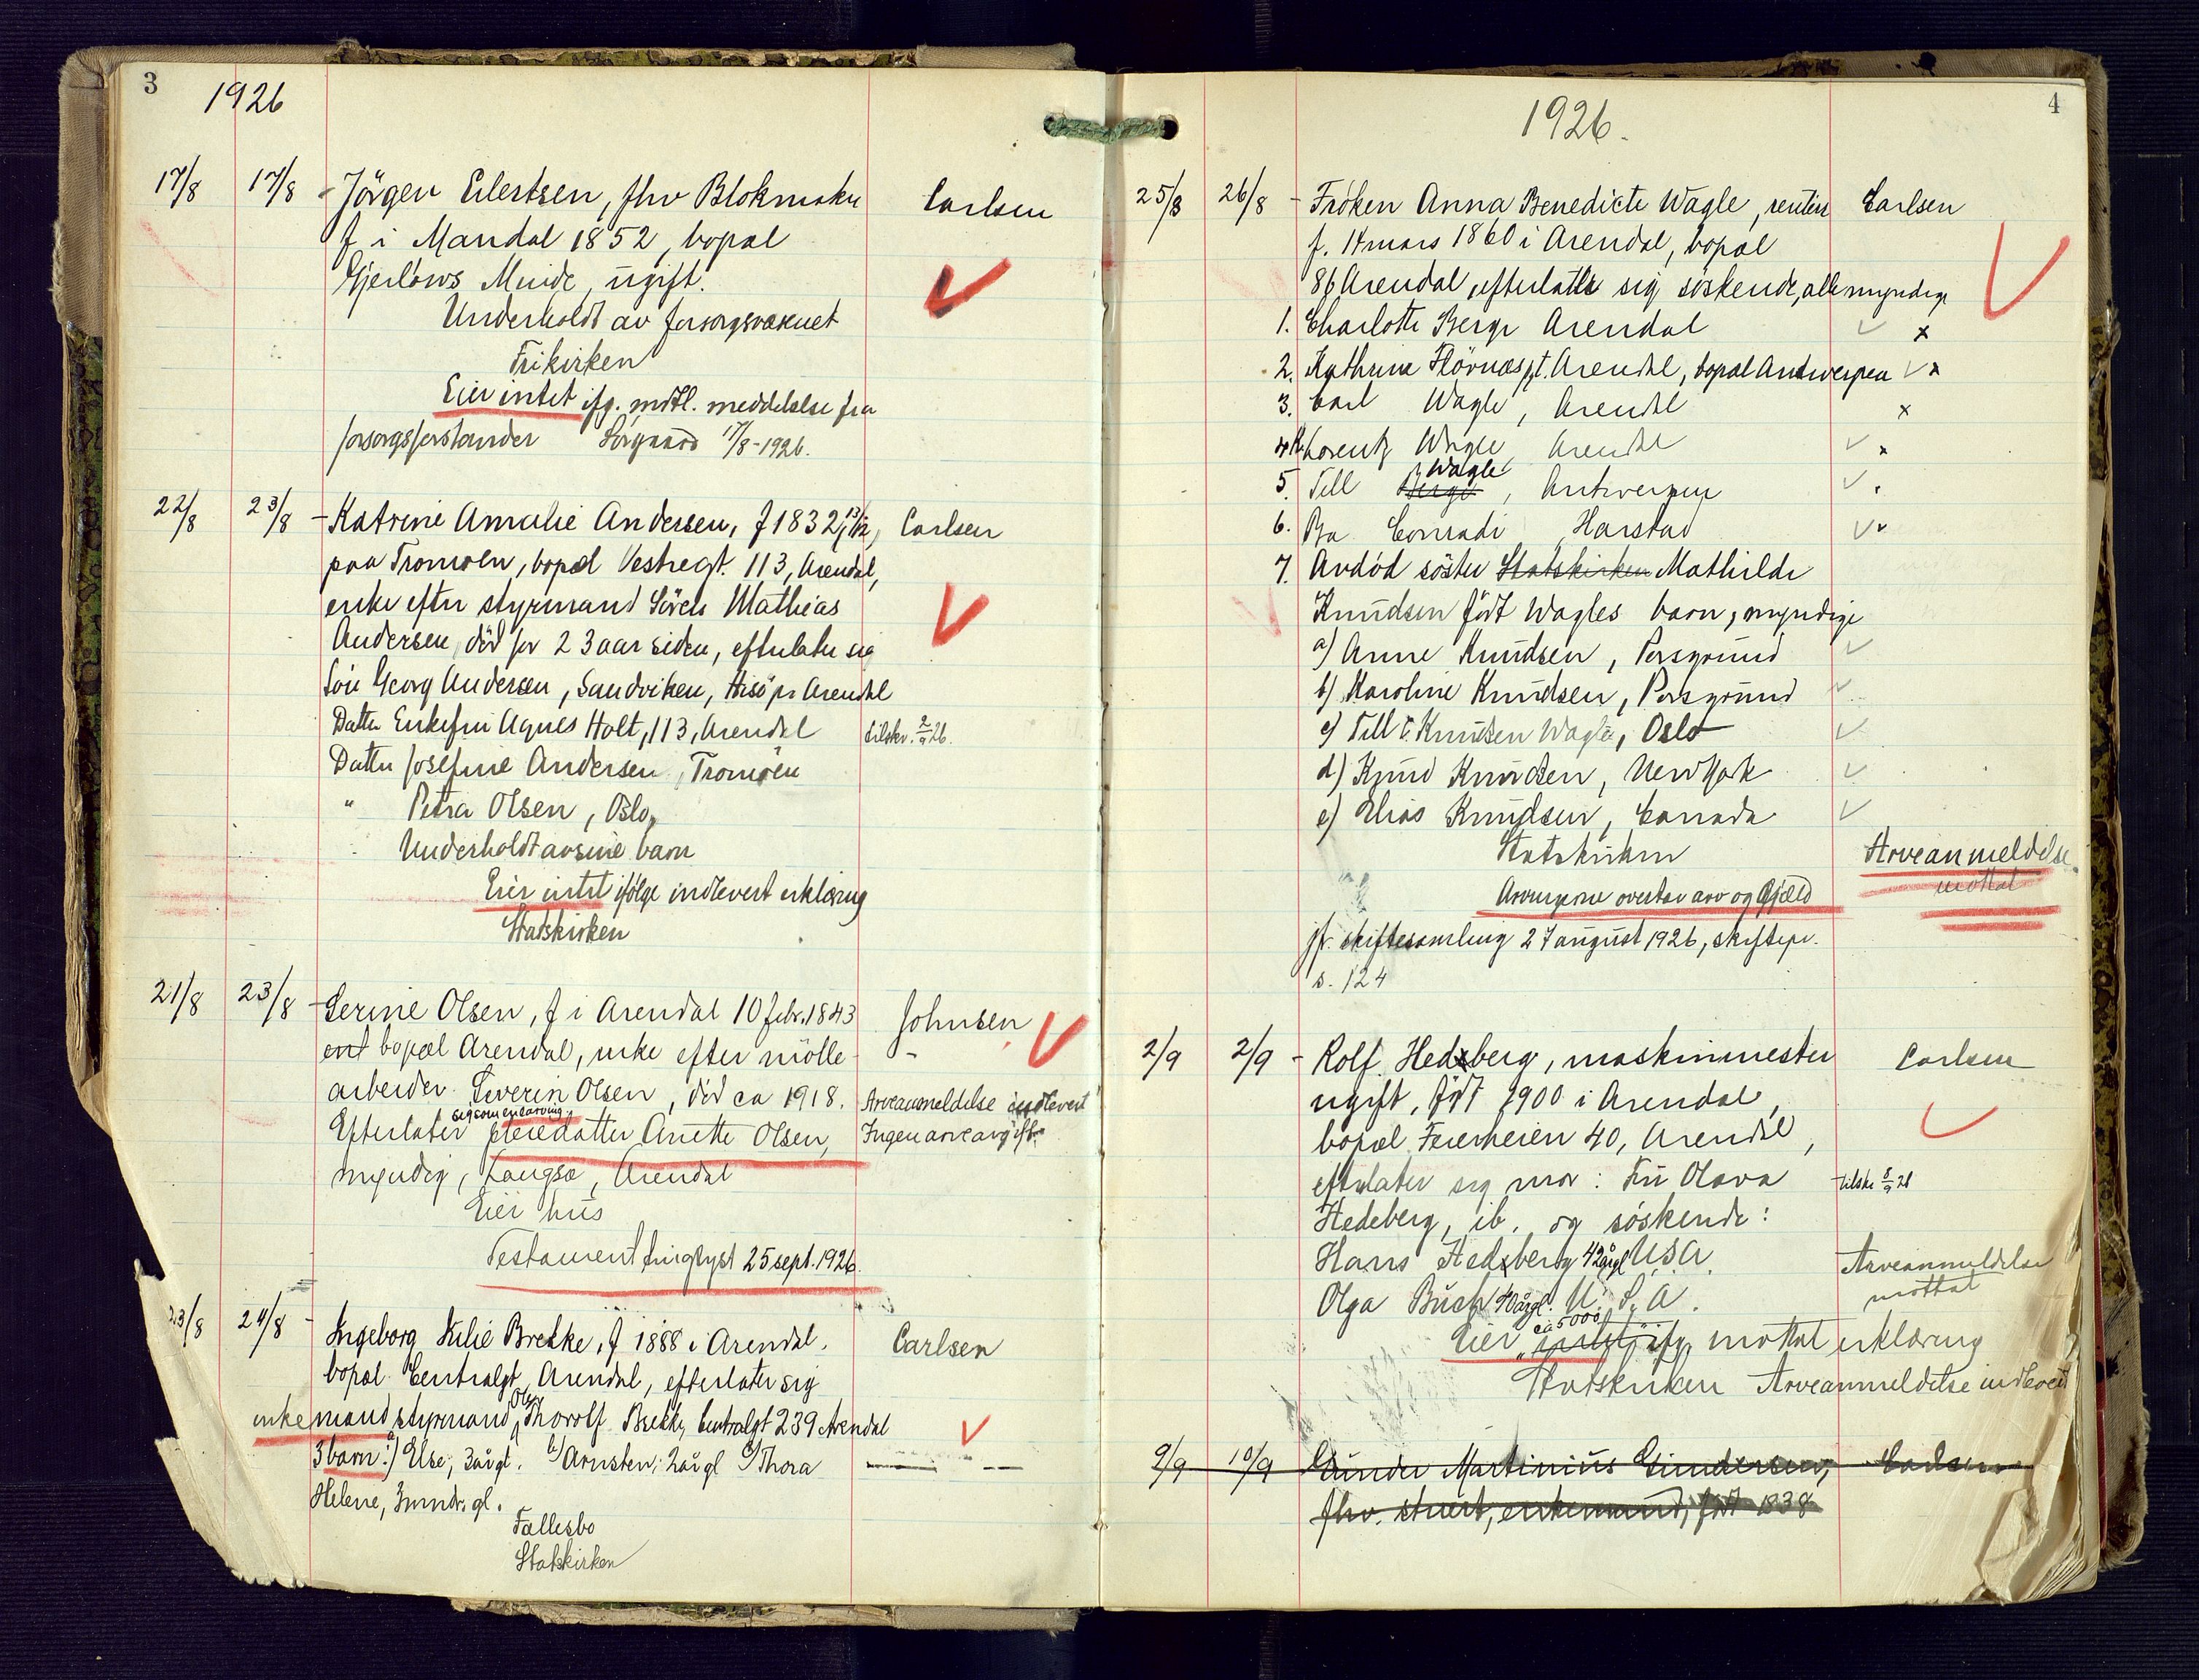 3
1926
17/8 17/8 - Jörgen Eilertsen, fhv Blokmaker Carlsen
f i Mandal 1852, bopæl
Gjerløws Minde, ugift.
Underholdt av forsorgsvæsenet
Frikirken
Eier intet ifg. mdtl. meddelelse fra
forsorgsforstander 17/8-1926.
22/8 23/8 - Katrine Amalie Andersen, f 1832, Carlsen
paa Tromøen, bopæl Vestregt. 113, Arendal,
enke efter styrmand Sören Mathias
Andersen, död for 23 aar siden, efterlater sig
Sön Georg Andersen, Sandviken, Hisö pr Arendal
Datter Enkefru Agnes Holt, 113, Arendal tilskr. 2/9 26.
Datter Josefine Andersen, Tromöen
" Petra Olsen, Oslo,
Underholdt av sine barn
Eier intet ifölge indlevert erklæring
Statskirken
21/8 23/8 - Serine Olsen, f i Arendal 10 febr. 1843 Johnsen
ent bopæl Arendal, enke efter mölle-
arbeider Severin Olsen, död ca 1918. Arveanmeldelse indlevert
sig som enearving
Efterlater pleiedatter Anette Olsen, Ingen arveavgift.
myndig, Langsæ, Arendal
Eier hus
Testament tinglyst 25 sept. 1926.
23/8 24/8 - Ingeborg Julie Brekke, f 1888 i Arendal. Carlsen
bopæl Centralgt, Arendal, efterlater sig
enkemand styrmand Olaf Thorolf Brekke, Centralgt 239 Arendal
3 barn: a) Else, 3 aar gl. b) Arnsten, 2 aar gl c) Thora
Helene, 3 mndr. gl.
Fællesbo
Statskirken
4
1926.
25/8 26/8 - Frøken Anna Benedicte Wagle, rentiere Carlsen
f. 14 mars 1860 i Arendal, bopæl
86 Arendal, efterlater sig søskende, alle myndige
1. Charlotte Berge Arendal x
2. Kathrine Flövnæs pt. Arendal, bopæl Antwerpen x
3. Carl Wagle, Arendal x
4. Lorentz Wagle, Arendal x
Wagle
5. Till Berge, Antwerpen
6. Bra Conradi, Harstad
7. Avdöd söster Statskirken Mathilde
Knudsen född Wagles barn, myndige
a) Anne Knudsen, Porsgrund
b) Karoline Knudsen, Porsgrund
c) Till Knudsen Wagle, Oslo
d) Knud Knudsen, New York
e) Elias Knudsen, Canada
Statskirken Arveanmeldelse
mottat
Arvingerne overtar arv og Gjæld
jfr. skiftesamling 27 august 1926, skiftepr.
s. 124
2/9 2/9 - Rolf Hedeberg, maskinmester Carlsen
ugift, född 1900 i Arendal,
bopæl Feierheien 40, Arendal,
efterlater sig mor: Fru Olava tilskr 8/9 26
Hedeberg, ib. og søskende:
Hans Hedeberg 42 aar gl USA. Arveanmeldelse
mottat
Olga Busch 40 aar gl. U.S.A.
ca 5000
Eier "intet" ifg. mottat erklæring
Statskirken Arveanmeldelse indlevert
9/9 10/9 Gunder Martinius Gundersen, Carlsen
fhv. stuert, enkemand, född 1838